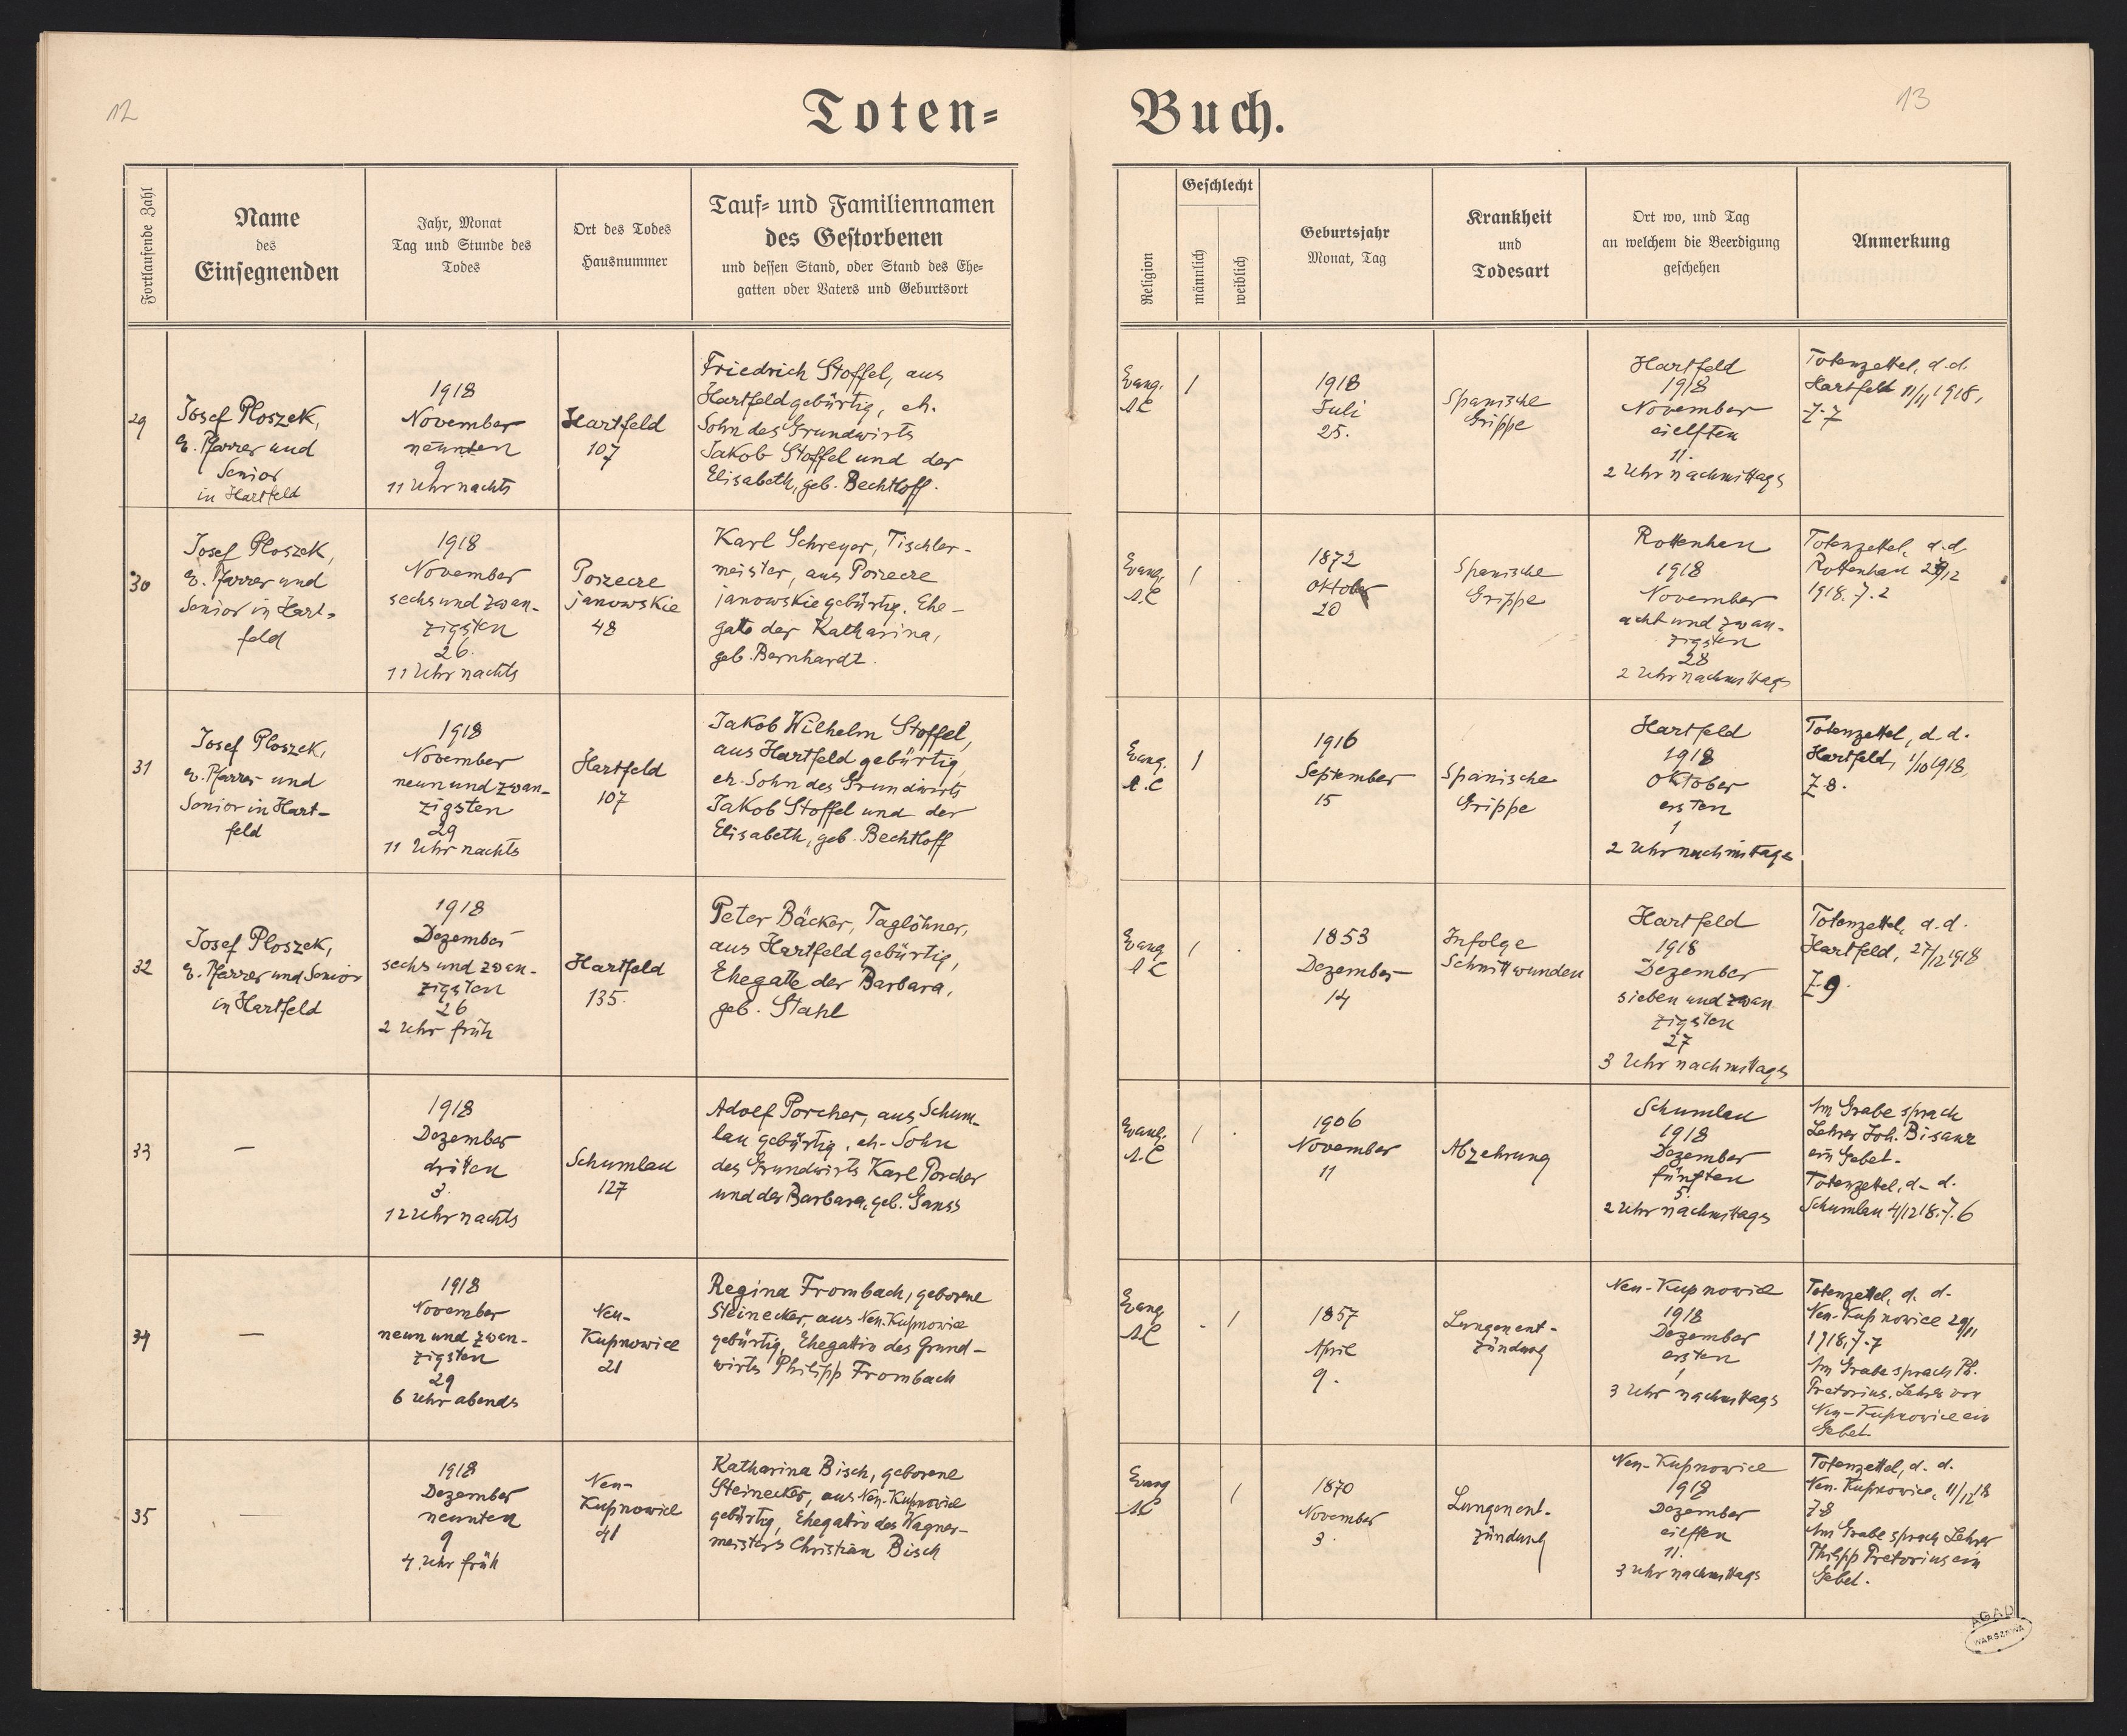 12
Toten=
Buch.
13
Fortlaufende Zahl
Name
des
Einsegnenden
Jahr, Monat
Tag und Stunde des
Todes
Ort des Todes
Hausnummer
Tauf= und Familiennamen
des Gestorbenen
und dessen Stand, oder Stand des Ehe=
gatten oder Vaters und Geburtsort
Religion
Geschlecht
männlich
weiblich
Geburtsjahr
Monat, Tag
Krankheit
und
Todesart
Ort wo, und Tag
an welchem die Beerdigung
geschehen
Anmerkung
29
Josef Ploszek,
e. Pfarrer und
Senior
in Hartfeld
1918
November
neunten
9
11 Uhr nachts
Hartfeld
107
Friedrich Stoffel, aus
Hartfeld gebürtig, eh.
Sohn des Grundwirts
Jakob Stoffel und der
Elisabeth, geb. Bechtloff.
Evang.
A.C
1
1918
Juli
25.
Spanische
Grippe
Hartfeld
1918
November
eielften
11.
2 Uhr nachmittags
Totenzettel, d.d.
Hartfeld 11/11 1918,
Z. 7
30
Josef Ploszek,
e. Pfarrer und
Senior in Hart-
feld
1918
November
sechsundzwan-
zigsten
26.
11 Uhr nachts
Porzecze
janowskie
48
Karl Schreyer, Tischler-
meister, aus Porzecze
janowskie gebürtig. Ehe-
gatte der Katharina,
geb. Bernhardt.
Evang.
A.C
1
1872
Oktober
20
Spanische
Grippe
Rottenhan
1918
November
acht und zwan-
zigsten
28
2 Uhr nachmittags
Totenzettel, d.d
Rottenhan
1918. Z. 2
31
Josef Ploszek,
e. Pfarrer und
Senior in Hart-
feld
1918
November
neunundzwan-
zigsten
29
11 Uhr nachts
Hartfeld
107
Jakob Wilhelm Stoffel,
aus Hartfeld gebürtig,
eh. Sohn des Grundwirts
Jakob Stoffel und der
Elisabeth, geb. Bechtloff
Evang.
A.C
1
1916
September
15
Spanische
Grippe
Hartfeld
1918
Oktober
ersten
1
2 Uhr nachmittags
Totenzettel, d.d.
Hartfeld, 1/10 1918,
Z. 8.
32
Josef Ploszek,
e. Pfarrer und Senior
in Hartfeld
1918
Dezember
sechsundzwan-
zigsten
26
2 Uhr früh
Hartfeld
135.
Peter Bäcker, Taglöhner,
aus Hartfeld gebürtig,
Ehegatte der Barbara,
geb. Stahl
Evang
A C
1
1853
Dezember
14
Infolge
Schnittwunden
Hartfeld
1918
Dezember
sieben und zwan
zigsten
27
3 Uhr nachmittags
Totenzettel, d.d.
Hartfeld, 27/12 1918
Z. 9.
33
—
1918
Dezember
dritten
3.
12 Uhr nachts
Schumlau
127
Adolf Porcher, aus Schum-
lau gebürtig, eh. Sohn
des Grundwirts Karl Porcher
und der Barbara, geb. Ganss
Evang.
A.C
1
1906
November
11
Abzehrung
Schumlau
1918
Dezember
fünften
5.
2 Uhr nachmittags
Am Grabe sprach
Lehrer Joh. Bisanz
ein Gebet.
Totenzettel, d. d.
Schumlau 4/12 18. Z. 6
34
—
1918
November
neun und zwan-
zigsten
29
6 Uhr abends
Neu-
Kupnowice
21
Regina Frombach, geborene
Steinecker, aus Neu-Kupnowice
gebürtig, Ehegattin des Grund-
wirts Philipp Frombach
Evang
AC
1
1857
April
9.
Lungenent-
zündung
Neu-Kupnowice
1918
Dezember
ersten
1
3 Uhr nachmittags
Totenzettel, d. d.
Neu-Kupnowice 29/11
1918. Z. 7
Am Grabe sprach Ph.
Pretorius, Lehrer von
Neu-Kupnowice ein
Gebet
35
—
1918
Dezember
neunten
9
4 Uhr früh
Neu-
Kupnowice
41
Katharina Bisch, geborene
Steinecker, aus Neu-Kupnowice
gebürtig, Ehegattin des Wagner-
meisters Christian Bisch
Evang
AC
1
1870
November
3.
Lungenent-
zündung
Neu-Kupnowice
1918
Dezember
eilften
11.
3 Uhr nachmittags
Totenzettel, d. d.
Neu-Kupnowice, 11/12 18
Z. 8
Am Grabe sprach Lehrer
Philipp Pretorius ein
Gebet.
AGAD
WARSZAWA